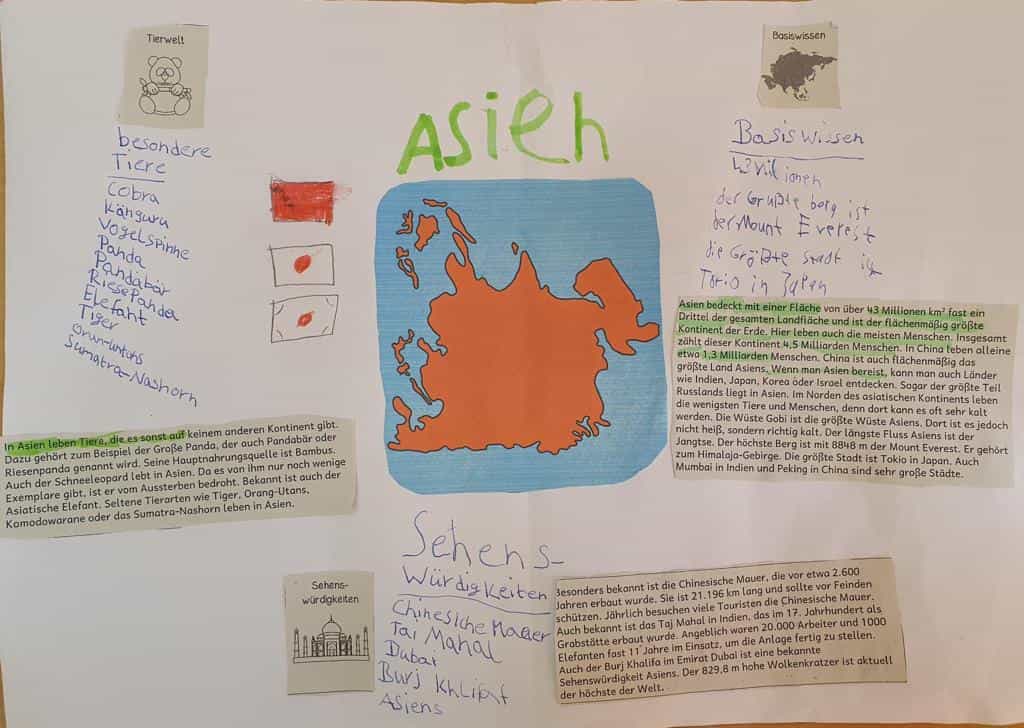 Tierwelt
besondere
Tiere
Cobra
Känguru
Vogelspinne
Panda
Pandabär
RiesePanda
Elefant
Tiger
orun-untuns
Sumatra-Nashorn
In Asien leben Tiere, die es sonst auf keinem anderen Kontinent gibt.
Dazu gehört zum Beispiel der Große Panda, der auch Pandabär oder
Riesenpanda genannt wird. Seine Hauptnahrungsquelle ist Bambus.
Auch der Schneeleopard lebt in Asien. Da es von ihm nur noch wenige
Exemplare gibt, ist er vom Aussterben bedroht. Bekannt ist auch der
Asiatische Elefant. Seltene Tierarten wie Tiger, Orang-Utans,
Komodowarane oder das Sumatra-Nashorn leben in Asien.
ASieh
Basiswissen
Basiswissen
der Grußte berg ist
der Mount Everest
die Größte stadt
Torio in Japen
Asien bedeckt mit einer Fläche von über 43 Millionen km² fast ein
Drittel der gesamten Landfläche und ist der flächenmäßig größte
Kontinent der Erde. Hier leben auch die meisten Menschen. Insgesamt
zählt dieser Kontinent 4,5 Milliarden Menschen. In China leben alleine
etwa 1,3 Milliarden Menschen. China ist auch flächenmäßig das
größte Land Asiens. Wenn man Asien bereist, kann man auch Länder
wie Indien, Japan, Korea oder Israel entdecken. Sogar der größte Teil
Russlands liegt in Asien. Im Norden des asiatischen Kontinents leben
die wenigsten Tiere und Menschen, denn dort kann es oft sehr kalt
werden. Die Wüste Gobi ist die größte Wüste Asiens. Dort ist es jedoch
nicht heiß, sondern richtig kalt. Der längste Fluss Asiens ist der
Jangtse. Der höchste Berg ist mit 8848 m der Mount Everest. Er gehört
zum Himalaja-Gebirge. Die größte Stadt ist Tokio in Japan. Auch
Mumbai in Indien und Peking in China sind sehr große Städte.
Sehens-
würdigkeiten
Sehens-
Würdigkeiten
Chinesiche Mauer
Tai Mahal
Dubai
Burj Khlifat
Asiens
Besonders bekannt ist die Chinesische Mauer, die vor etwa 2.600
Jahren erbaut wurde. Sie ist 21.196 km lang und sollte vor Feinden
schützen. Jährlich besuchen viele Touristen die Chinesische Mauer.
Auch bekannt ist das Taj Mahal in Indien, das im 17. Jahrhundert als
Grabstätte erbaut wurde. Angeblich waren 20.000 Arbeiter und 1000
Elefanten fast 11 Jahre im Einsatz, um die Anlage fertig zu stellen.
Auch der Burj Khalifa im Emirat Dubai ist eine bekannte
Sehenswürdigkeit Asiens. Der 829,8 m hohe Wolkenkratzer ist aktuell
der höchste der Welt.